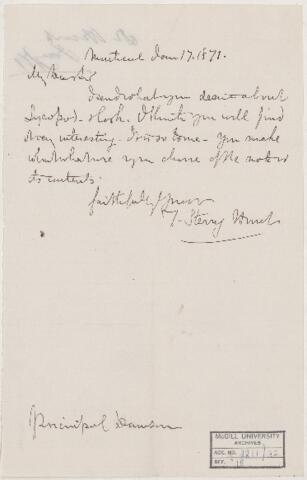 Montreal Jan 17. 1871.
My dear Sir
I send what you desire about
& look. I think you will find
it very interesting. It is so to me. You make
what
use you choose of the note or
its contents.
faithfully yours
T. Sterry Hunt
Principal Dawson
McGILL UNIVERSITY
ARCHIVES
ACC. NO.
REF.